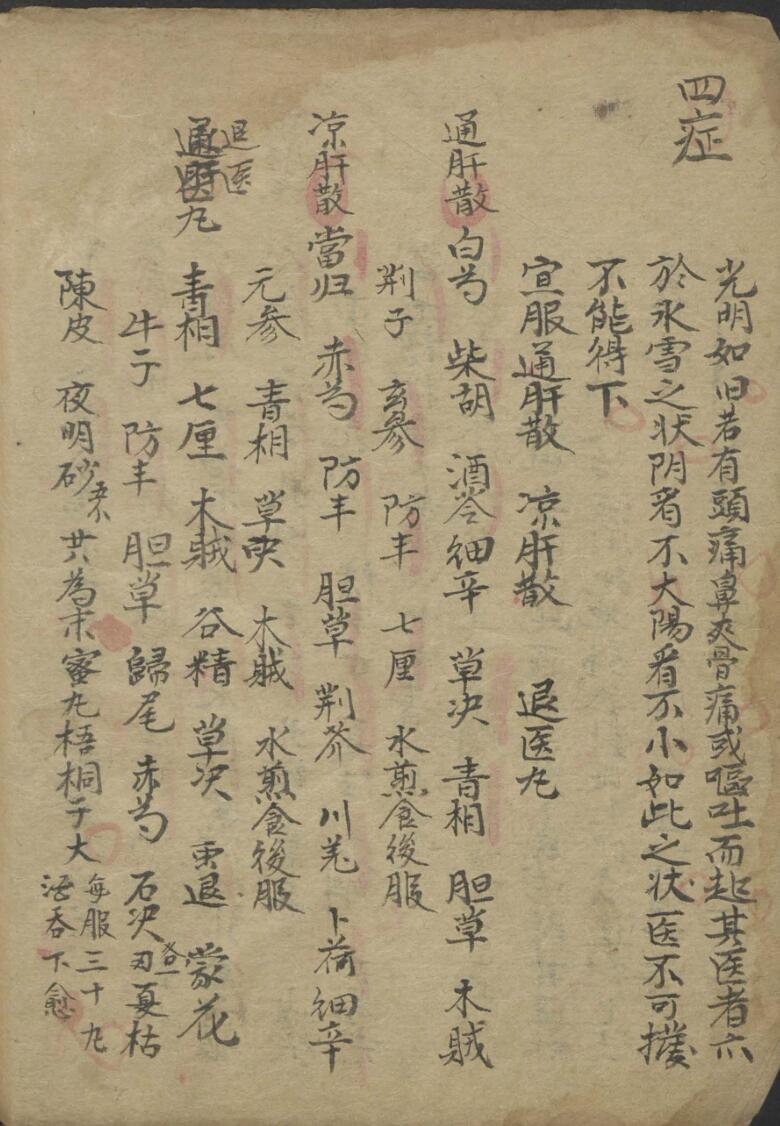 四症
光明如旧若有頭痛鼻爽骨痛或嘔吐而起其医者六
於氷雪之状阴看不大陽看不小如此之状医不可撥
不能得下
宜服通肝散 凉肝散 退医丸
通肝散 白芍 柴胡 酒芩 细辛 草决 青相 胆草 木贼
荆子 玄參 防丰 七厘 水煎食後服
凉肝散 當归 赤芍 防丰 胆草 荆芥 川羌 卜荷 细辛
元参 青相 草决 木贼 水煎食後服
退医
通医丸 青相 七厘 木贼 谷精 草决 虫退 蒙花
牛子 防丰 胆草 歸尾 赤芍 石决 夏枯
陳皮 夜明砂 共為末蜜丸梧桐子大
每服三十丸
酒吞下愈